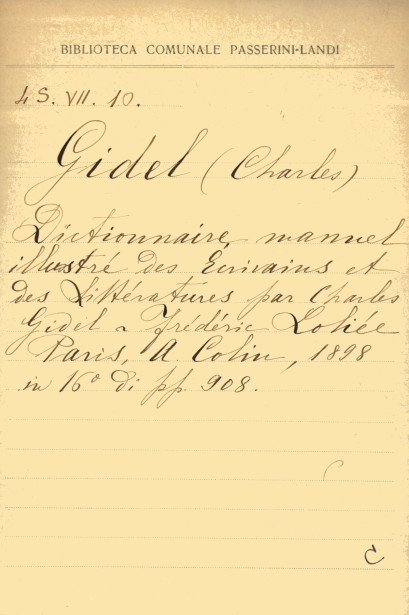 BIBLIOTECA COMUNALE PASSERINI-LANDI
4 S. VII. 10.
Gidel (Charles)
Dictionnaire, manuel
illustré des Ecrivains et
des Littératures par Charles
Gidel Frédéric Loliée
Paris, A Colin, 1898
in 16° di pp. 908.
C